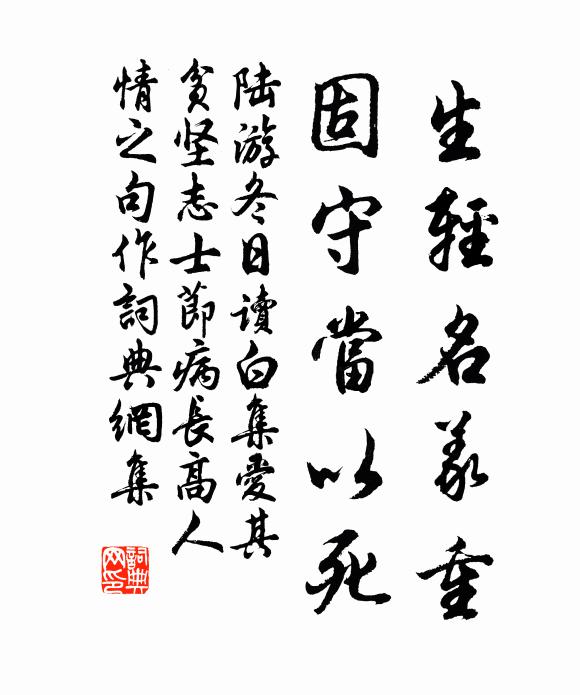 生輕名義重
固守當以死
陆游冬日讀白集愛其
貧坚志士節病長高人
情之句作詞典網集
詞典网印